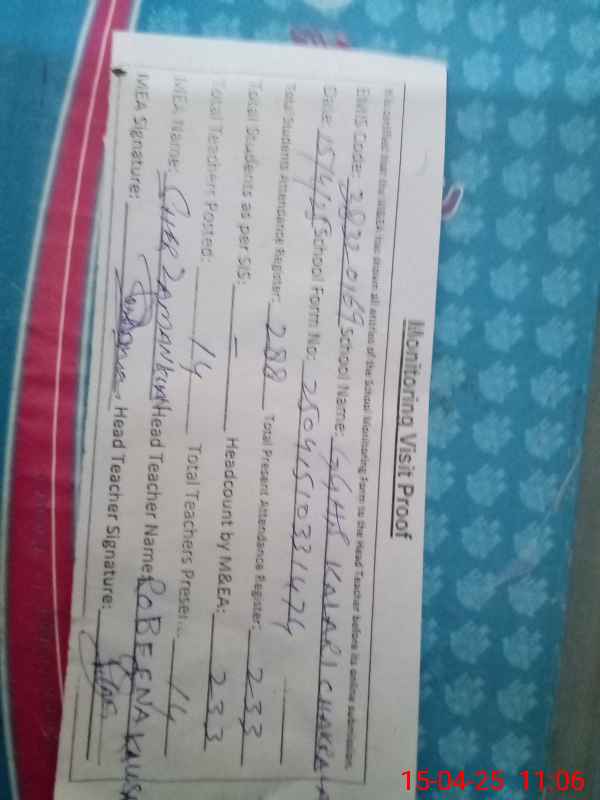 Monitoring Visit Proof
It is certified that the M&EA has shown all entries of the School Monitoring Form to the Head Teacher before its online submission.
EMIS Code: 38320169 School Name: GGHS KALARI CHAKRALA
Date: 15/4/25 School Form No: 25041510331474
Total Students Attendance Register: 288 Total Present Attendance Register: 233
Total Students as per SIS: – Headcount by M&EA: 233
Total Teachers Posted: 14 Total Teachers Present: 14
MEA Name: SHER ZAMAN KHAN Head Teacher Name: ROBEENA KAUSA
MEA Signature: Head Teacher Signature:
15-04-25 11:06